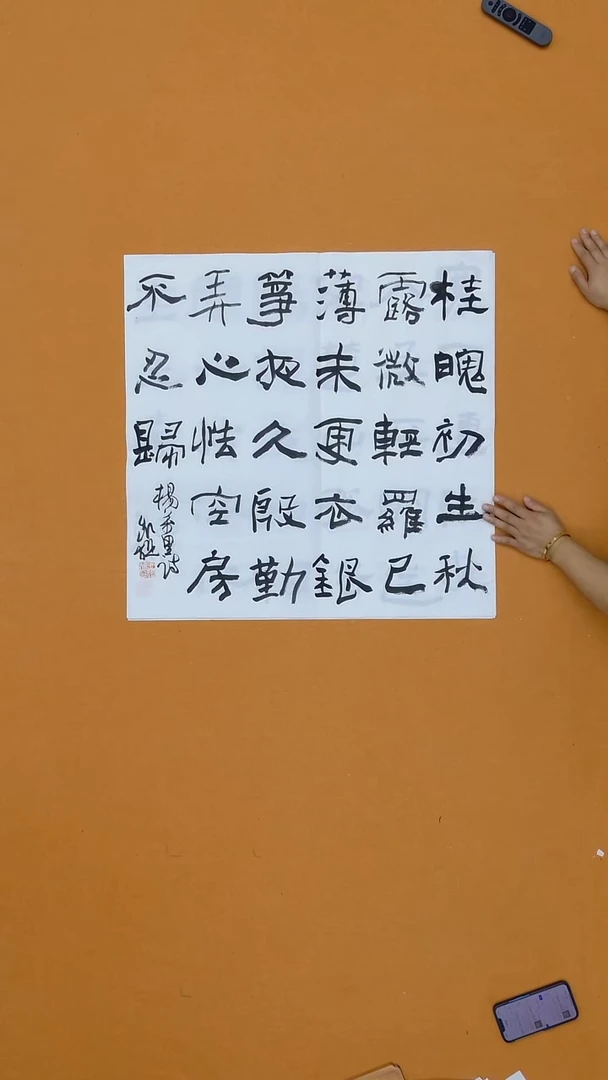 桂魄初生秋
露微輕羅已
薄未更衣銀
箏夜久殷勤
弄心怯空房
不忍歸